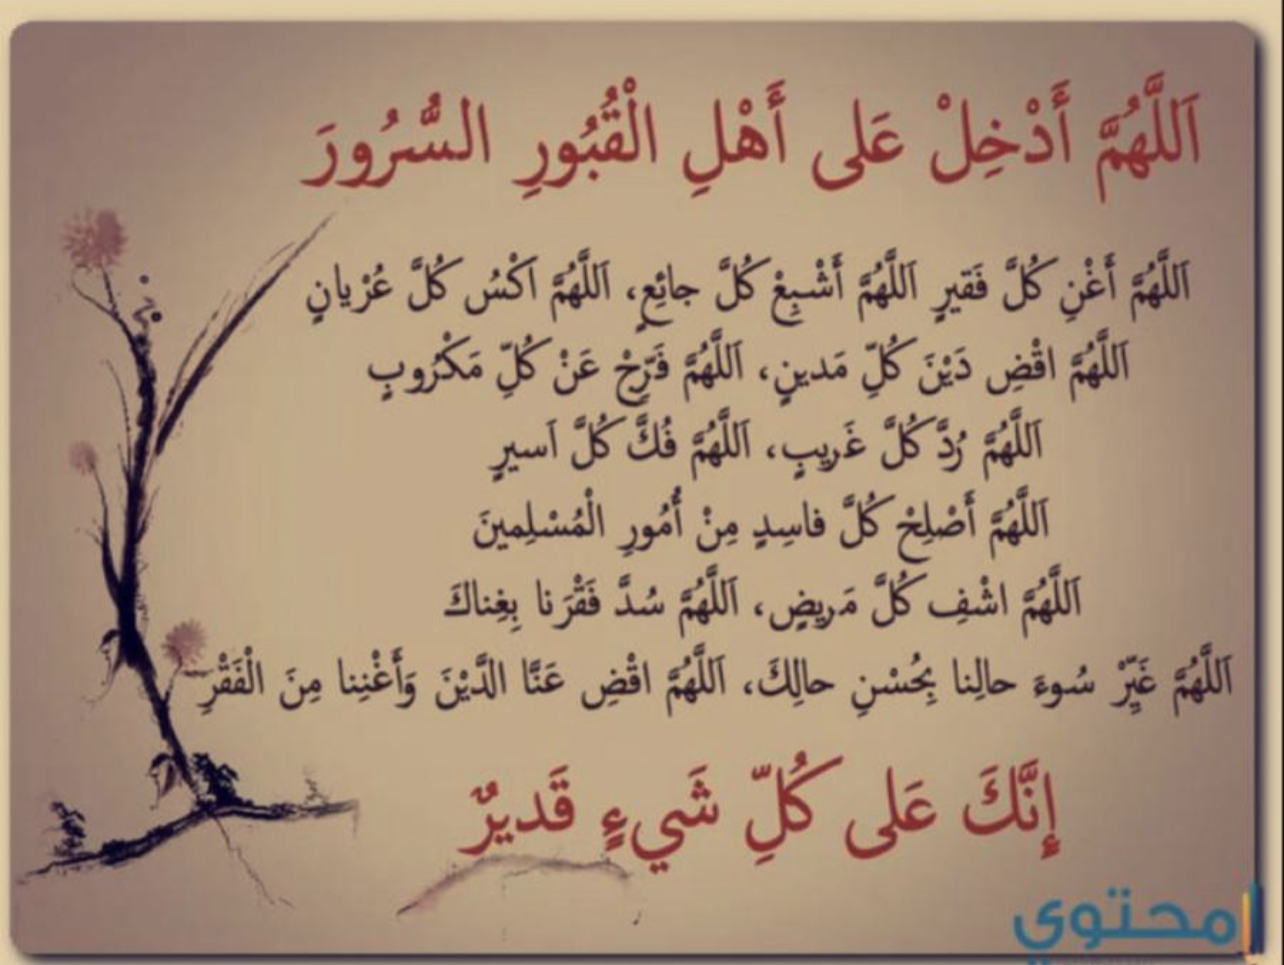 اَللَّهُمَّ أَدْخِلْ عَلى أَهْلِ الْقُبُورِ السُّرُورَ
اَللَّهُمَّ أَغْنِ كُلَّ فَقيرٍ اَللَّهُمَّ أَشْبِعْ كُلَّ جائِعٍ، اَللَّهُمَّ اَكْسُ كُلَّ عُرْيانٍ
اَللَّهُمَّ اقْضِ دَيْنَ كُلِّ مَدينٍ، اَللَّهُمَّ فَرِّجْ عَنْ كُلِّ مَكْرُوبٍ
اَللَّهُمَّ رُدَّ كُلَّ غَريبٍ، اَللَّهُمَّ فُكَّ كُلَّ اَسيرٍ
اَللَّهُمَّ أَصْلِحْ كُلَّ فاسِدٍ مِنْ أُمُورِ الْمُسْلِمينَ
اَللَّهُمَّ اشْفِ كُلَّ مَريضٍ، اَللَّهُمَّ سُدَّ فَقْرَنا بِغِناكَ
اَللَّهُمَّ غَيِّرْ سُوءَ حالِنا بِحُسْنِ حالِكَ، اَللَّهُمَّ اقْضِ عَنَّا الدَّيْنَ وَأَغْنِنا مِنَ الْفَقْرِ
إِنَّكَ عَلى كُلِّ شَيءٍ قَديرٌ
محتوي